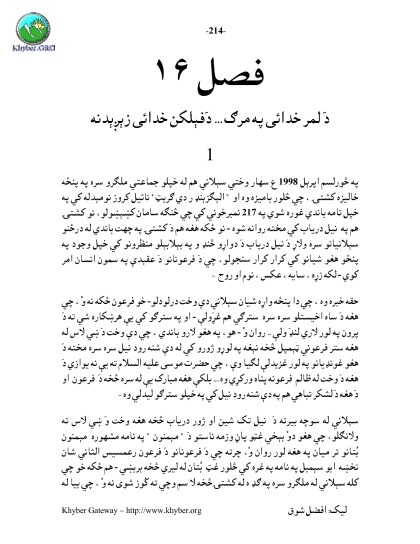 -214-
Khyber.ORG
فصل ۱۶
دَ لمر خدائی په مرګ... دَ فېلکن خدائی زېږېدنه
1
په څورلسم اپريل 1998 ع سهار وختي سېلاني هم له خپلو جماعتي ملګرو سره په پنځه
خاليزه کښتۍ، چې څلور باميزه وه او " البګزېنډر دي ګرېټ" نائيل کروز نومېدله کې په
خپل نامه باندې غوره شوي په 217 نمبرخونې کې چې څنګه سامان کښېښولو، نو کښتۍ
هم په نيل درياب کې مخته روانه شوه - نو ځکه هغه دي هم د کښتۍ په چهت باندې له درځنو
سېلانيانو سره ولاړ دَ نيل درياب دَ دواړو څنډو په بېلابېلو منظرونو کې خپل وجود په
پنځو هغو شيانو کې کرار کرار سنجولو، چې دَ فرعونانو دَ عقيدې په سمون انسان امر
کوي - لکه زړه، سايه، عکس، نوم او روح -
حقه خبره وه، چې دا پنځه واړه شيان سېلاني دې وخت درلودلو - خو فرعون څکه نه و، چې
هغه دَ ساه اخيستلو سره سره سترګې هم غړولې - او په سترګو کې يې هرښکاره شي ته دَ
پرون په لور لارې لنډ ولې.. روان و - هو، په هغو لارو باندې، چې دې وخت دَ ښي لاس له
هغه ستر فرعوني ټېمپل څخه نېغه په لورو ژورو کې له دې شته رود نيل سره سره مخته دَ
هغو غونډيانو په لور غزېدلې لګيا وې، چې حضرت موسی عليه السلام ته يې نه يوازې دَ
هغه دَ وخت له ظالم فرعونه پناه ورکړې وه... بلکې هغه مبارک يې له سره څخه دَ فرعون او
دَ هغه دَ لشکر تباهي هم په دې شته رود نيل کې په خپلو سترګو ليدلي وه -
سېلاني له سوچه بېرته دَ نيل تک شين او ژور درياب څخه هغه وخت وَ ښي لاس ته
وانګلو، چې هغو دوَ بېخي غټو پان وزمه ناستو دَ " مېمنون " په نامه مشهوره مېمنون
بُتانو تر ميان په هغه لور روان و، چرته چې دَ فرعونانو دَ فرعون رعمسيس الثاني شان
نخښه ابو سېمبل په نامه په غره کې څلور غټ بُتان له ليرې څخه برېښي - هم ځکه خو چې
کله سېلاني له ملګرو سره په ګډه له کښتۍ څخه لاسم وچې ته کوز شوی نه و، چې بيا له
Khyber Gateway – http://www.khyber.org
ليک: افضل شوق